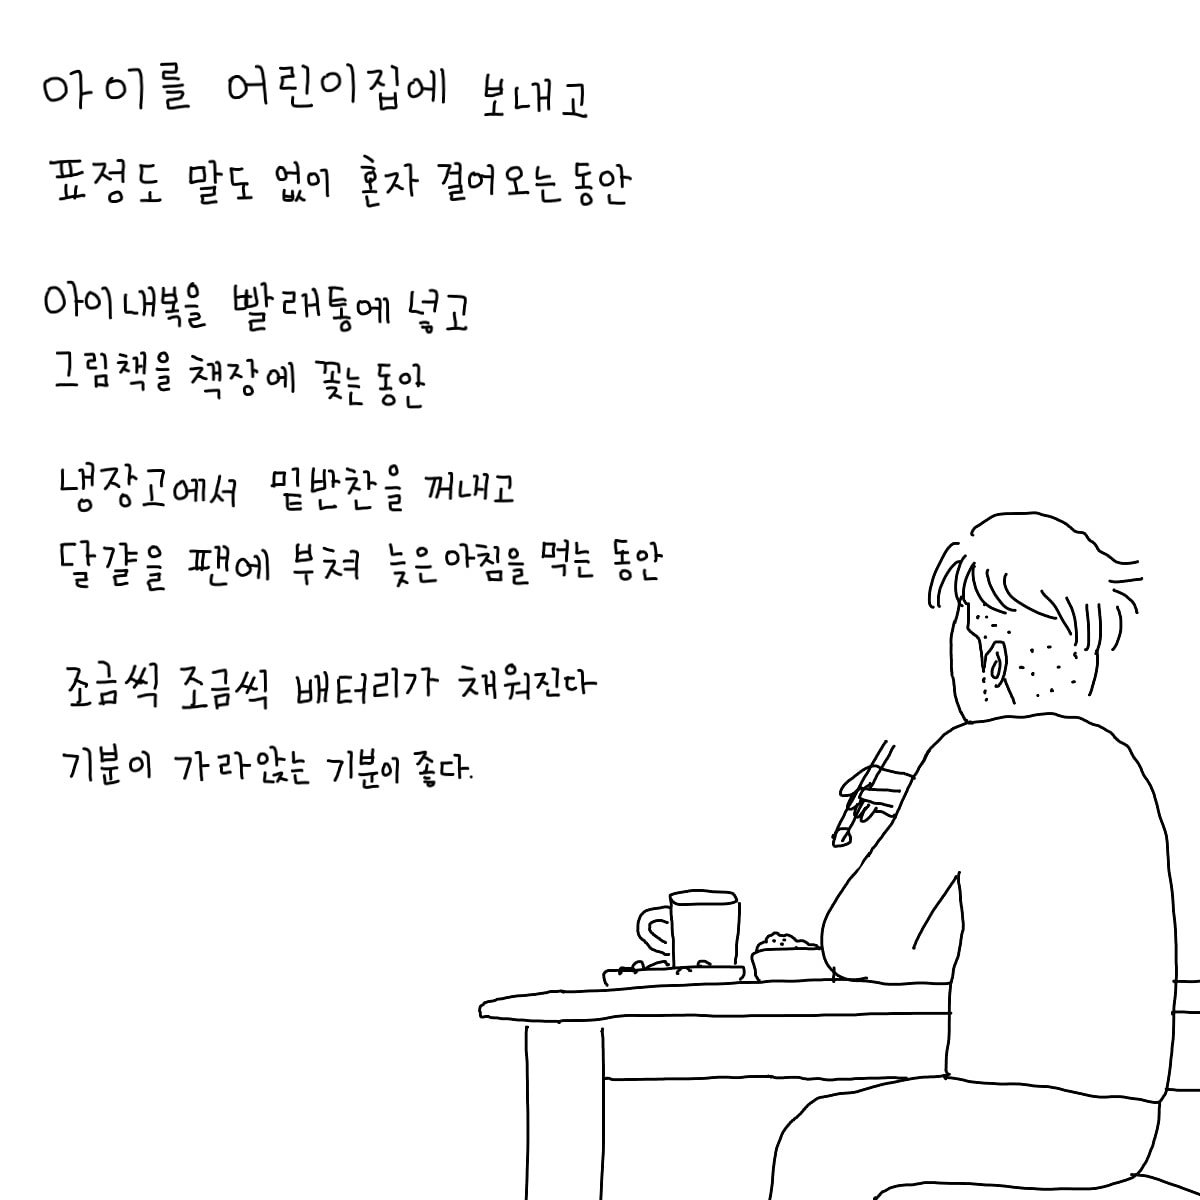 아이를 어린이집에 보내고
표정도 말도 없이 혼자 걸어오는 동안
아이 내복을 빨래통에 넣고
그림책을 책장에 꽂는 동안
냉장고에서 밑반찬을 꺼내고
달걀을 팬에 부쳐 늦은 아침을 먹는 동안
조금씩 조금씩 배터리가 채워진다
기분이 가라앉는 기분이 좋다.